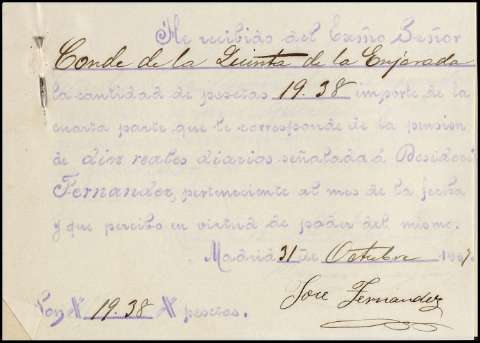 He recibido del Exmo Señor
Conde de la Quinta de la Enjarada
la cantidad de pesetas 19.38 importe de la
cuarta parte que le corresponde de la pension
de diez reales diarios señalada á Desideri
Fernandez, perteneciente al mes de la fecha
y que percibo en virtud de poder del mismo.
Madrid 31 de Octubre
Jose Fernandez
Son # 19.38 # pesetas.